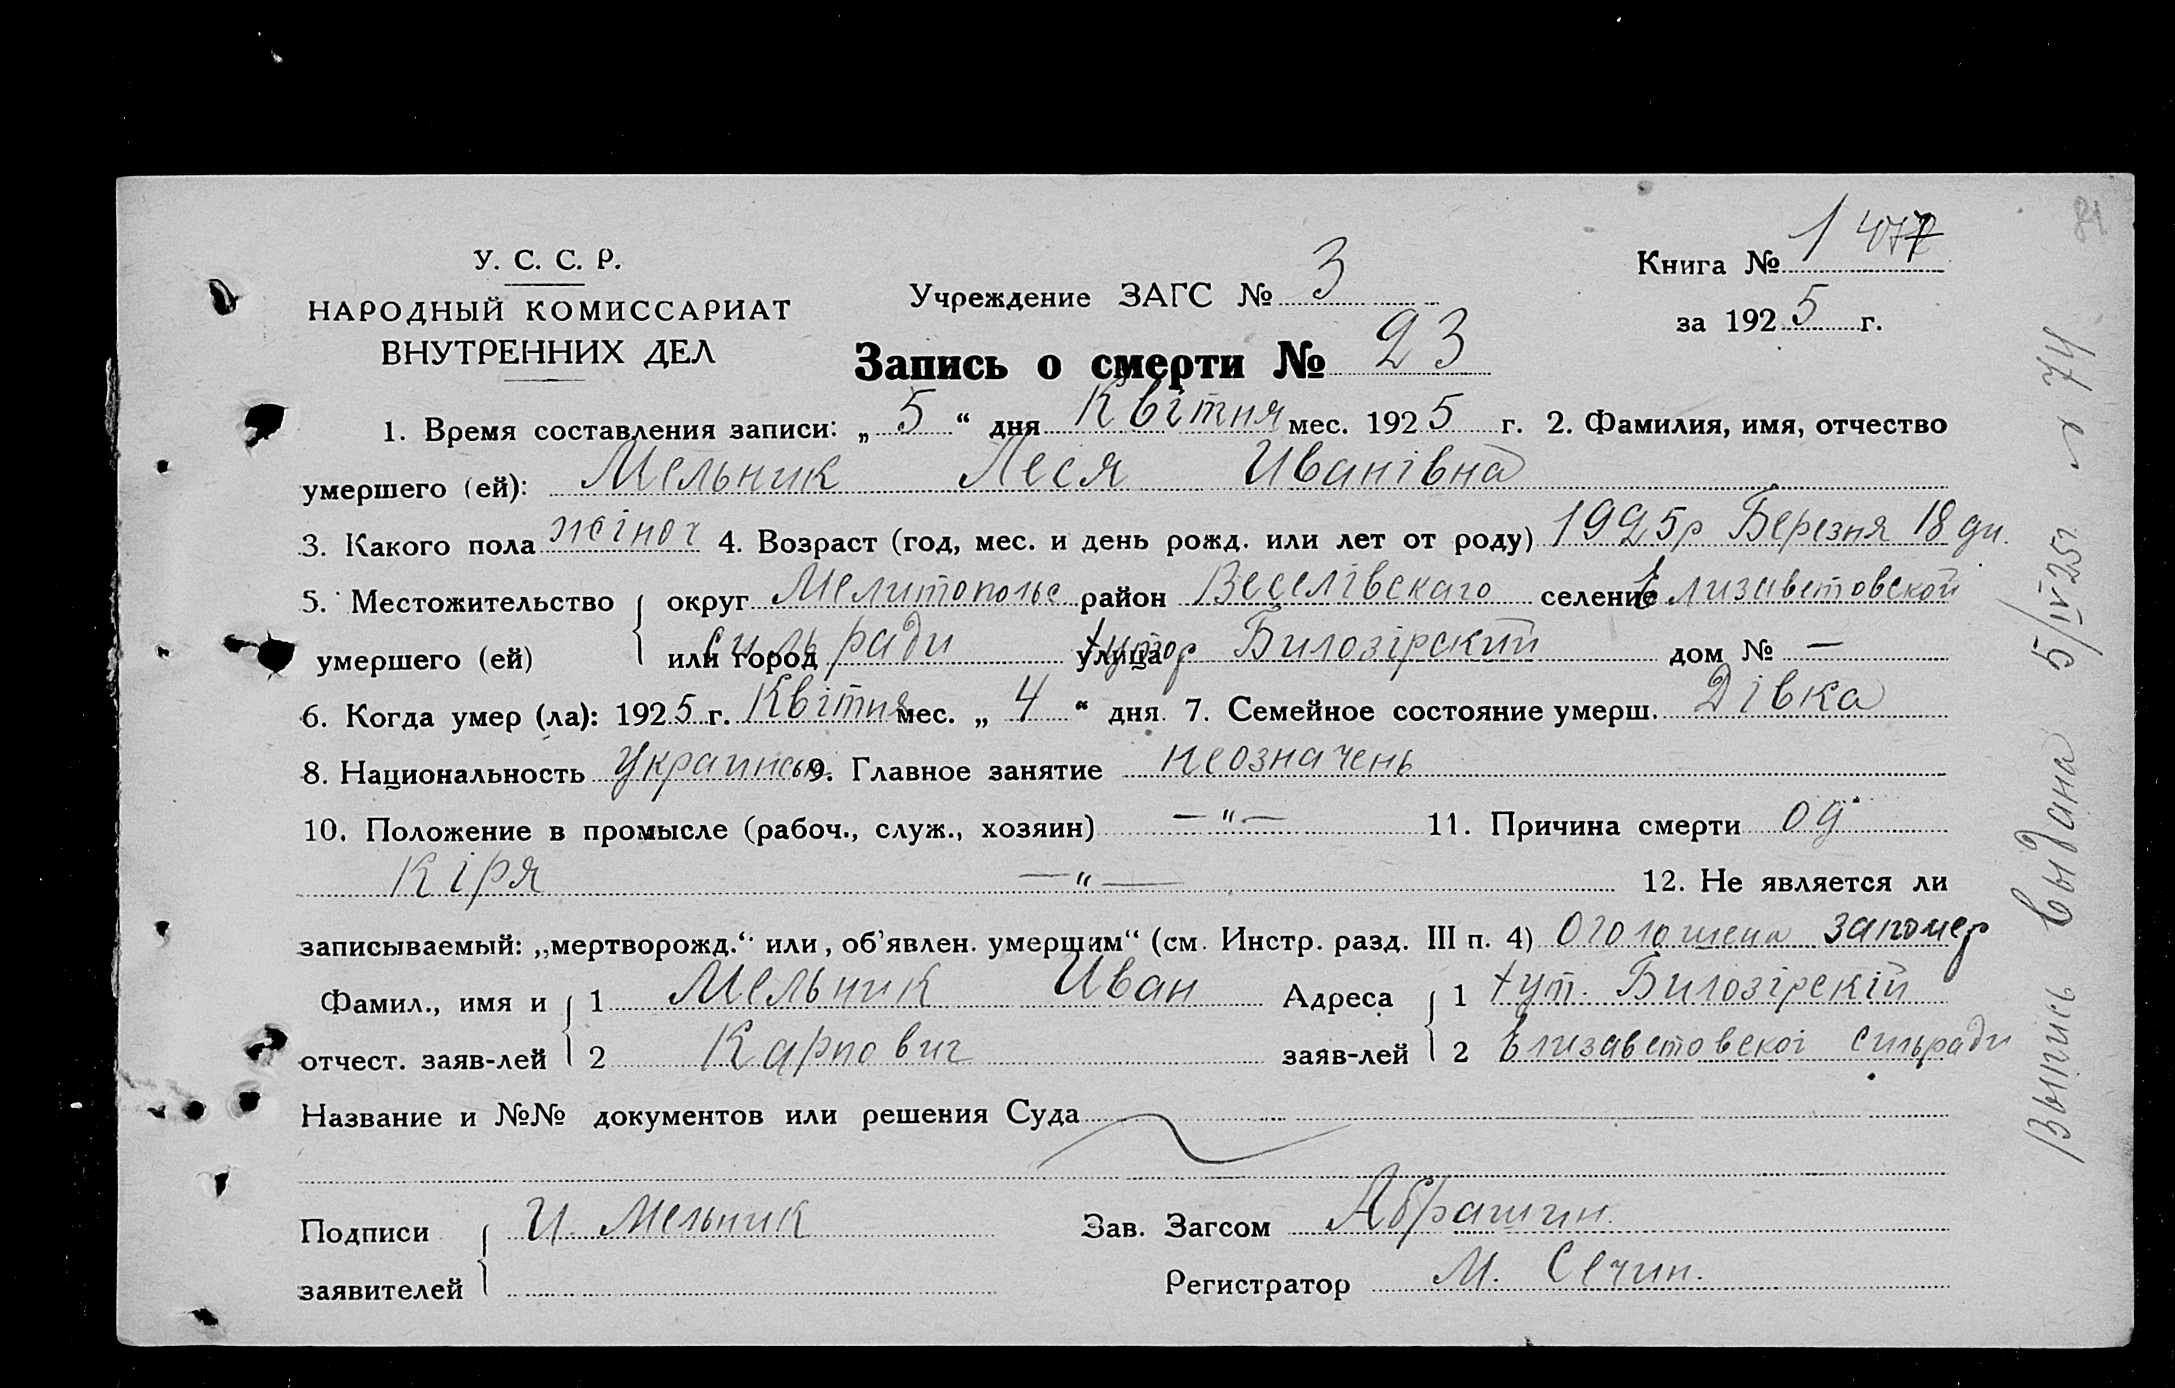 81
У. С. С. Р.
НАРОДНЫЙ КОМИССАРИАТ
ВНУТРЕННИХ ДЕЛ
Учреждение ЗАГС № 3
Книга № 1
за 1925 г.
Запись о смерти № 23
1. Время составления записи: „ 5 “ дня Квітня мес. 1925 г. 2. Фамилия, имя, отчество
умершего (ей): Мельник Леся Иванівна
3. Какого пола жіноч 4. Возраст (год, мес. и день рожд. или лет от роду) 1925р Березня 18 дн.
5. Местожительство округ Мелитопольс район Веселівскаго селение Елизаветовской
умершего (ей) или город сильради улица хутор Билозірский дом № —
6. Когда умер (ла): 1925 г. Квітня мес. „ 4 “ дня. 7. Семейное состояние умерш. Дівка
8. Национальность Украинськ 9. Главное занятие неозначень
10. Положение в промысле (рабоч., служ., хозяин) — " — 11. Причина смерти од
кіря — " — 12. Не является ли
записываемый: „мертворожд.“ или „об'явлен. умершим“ (см. Инстр. разд. III п. 4) Оголошена запомер
Фамил., имя и 1 Мельник Иван Адреса 1 хут. Билозірскій
отчест. заяв-лей 2 Карпович заяв-лей 2 Елизаветовскоі сильради
Название и №№ документов или решения Суда
Подписи И. Мельник Зав. Загсом Абрашин.
заявителей Регистратор М. Сечин.
Выпись выдана 5/IV 25г. № 74